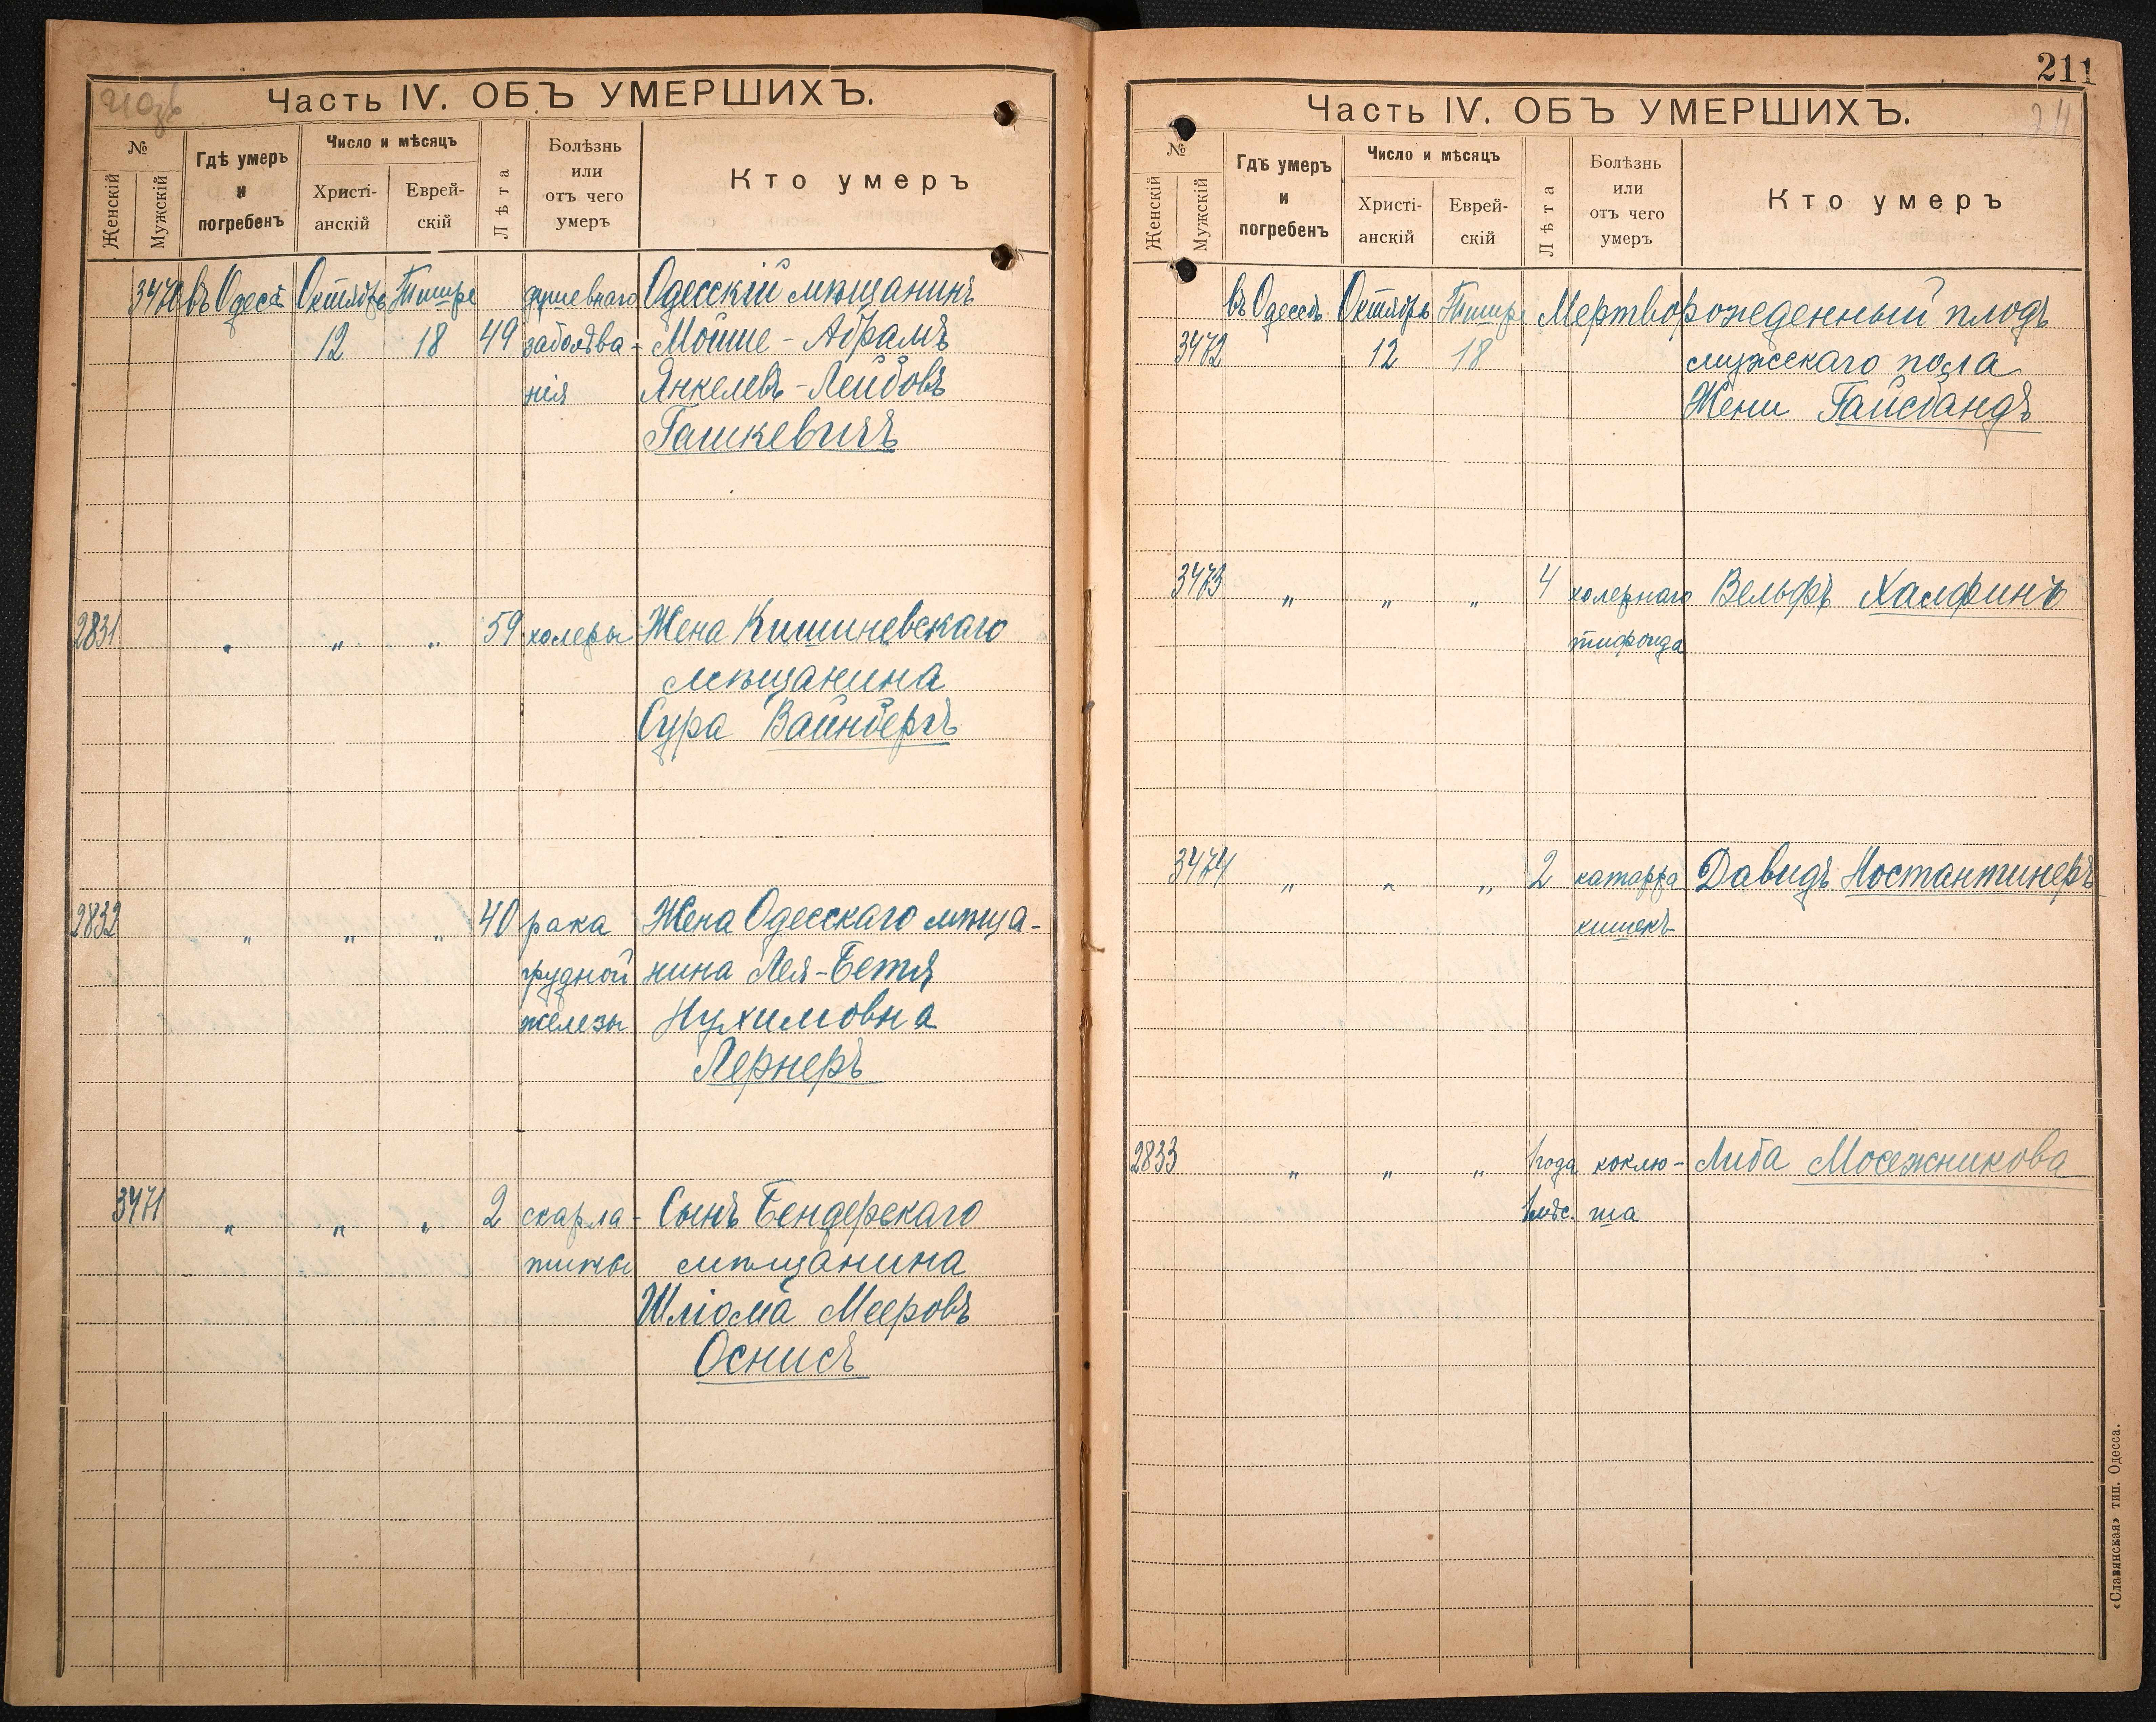 210об
Часть IV. ОБЪ УМЕРШИХЪ.
№
Женскій
Мужскій
Гдѣ умеръ
и
погребенъ
Число и мѣсяцъ
Христі-
анскій
Еврей-
скій
Лѣта
Болѣзнь
или
отъ чего
умеръ
Кто умеръ
3470 въ Одессѣ Октябрь Тишре душевнаго Одесскій мѣщанинъ
12 18 49 заболѣва- Мойше-Абрамъ
нія Янкелевъ-Лейбовъ
Гашкевичъ
2831 „ „ „ 59 холеры Жена Кишиневскаго
мѣщанина
Сура Вайнбергъ
2832 „ „ „ 40 рака Жена Одесскаго мѣща-
грудной нина Лея-Бетя
железы Нухимовна
Лернеръ
3471 „ „ „ 2 скарла- Сынъ Бендерскаго
тины мѣщанина
Шліома Мееровъ
Оснисъ
211
Часть IV. ОБЪ УМЕРШИХЪ.
№
Женскій
Мужскій
Гдѣ умеръ
и
погребенъ
Число и мѣсяцъ
Христі-
анскій
Еврей-
скій
Лѣта
Болѣзнь
или
отъ чего
умеръ
Кто умеръ
въ Одессѣ Октябрь Тишре Мертворожденный плодъ
3472 12 18 мужскаго пола
Жени Гайсбандъ
3473 „ „ „ 4 холернаго Вельфъ Халфинъ
тифоида
3474 „ „ „ 2 катарра Давидъ Костантинеръ
кишекъ
2833 „ „ „ 1 года коклю- Либа Мосежникова
1 мѣс. ша
«Славянская» тип. Одесса.